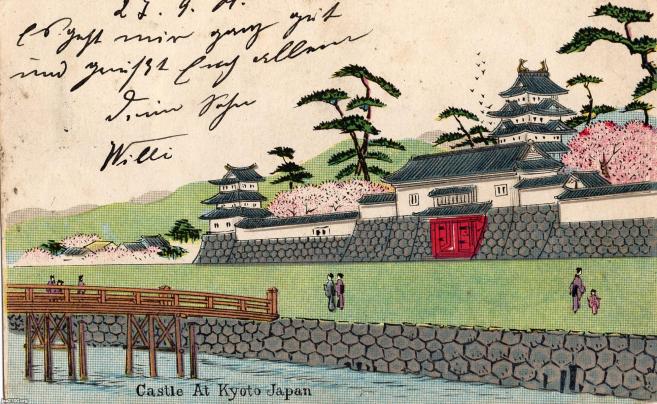 27. 9. 01.
Es geht mir ganz gut
und grüßt Euch allen
Dein Sohn
Willi
Castle At Kyoto Japan